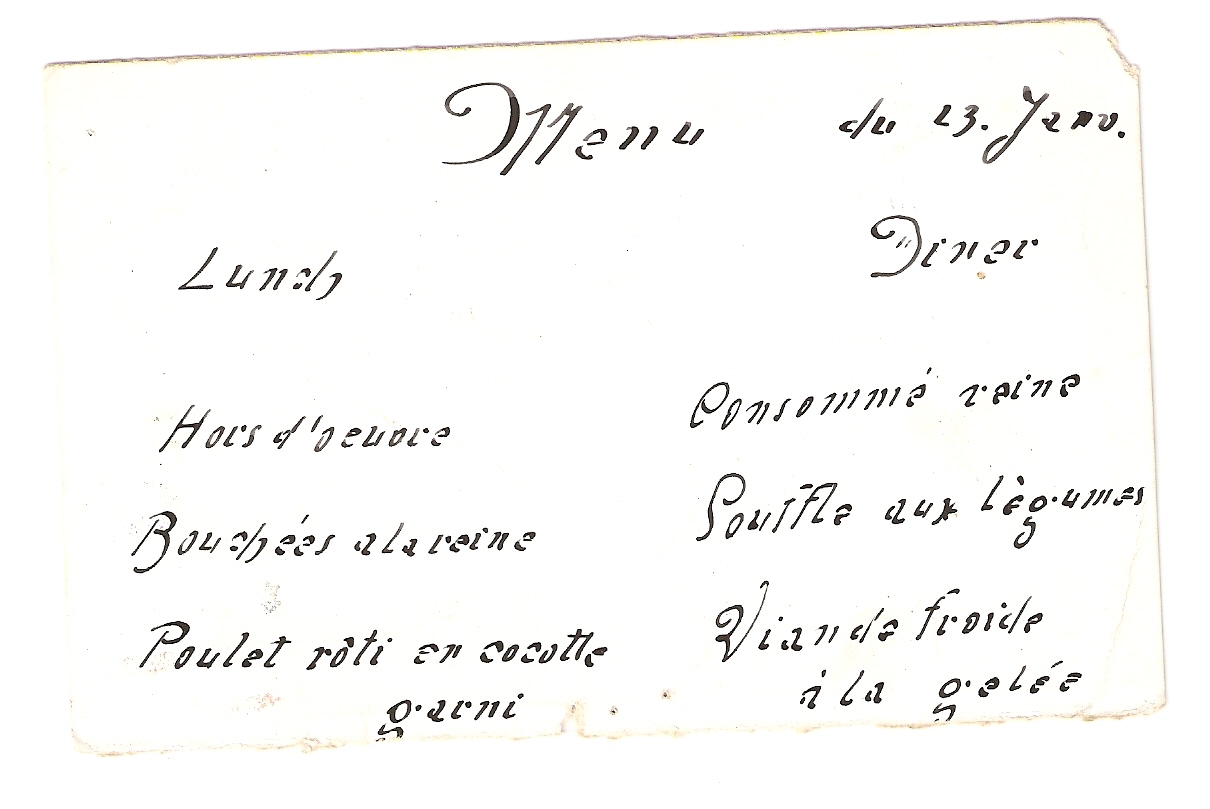 Menu du 23. Janv.
Lunch
Hors d'oeuvre
Bouchées a la reine
Poulet rôti en cocotte
garni
Diner
Consommé reine
Souffle aux lègumes
Viande froide
à la gelée